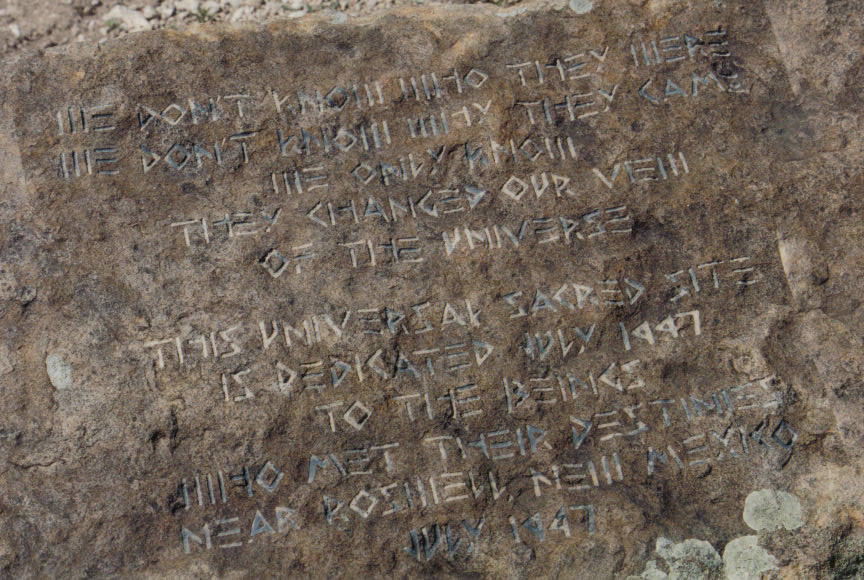 WE DON'T KNOW WHO THEY WERE
WE DON'T KNOW WHY THEY CAME
WE ONLY KNOW
THEY CHANGED OUR VIEW
OF THE UNIVERSE
THIS UNIVERSAL SACRED SITE
IS DEDICATED JULY 1997
TO THE BEINGS
WHO MET THEIR DESTINIES
NEAR ROSWELL, NEW MEXICO
JULY 1947